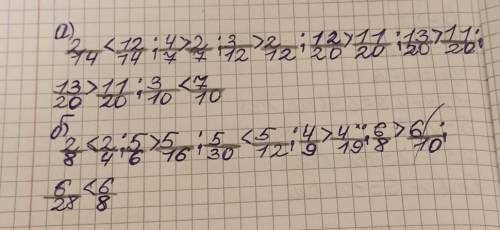 а)
2/14 < 12/14; 4/7 > 2/7; 3/12 > 2/12; 12/20 > 11/20; 13/20 > 11/20;
13/20 > 11/20; 3/10 < 7/10
б)
2/8 < 2/4; 5/6 > 5/16; 5/30 < 5/12; 4/9 > 4/19; 6/8 > 6/10;
6/28 < 6/8